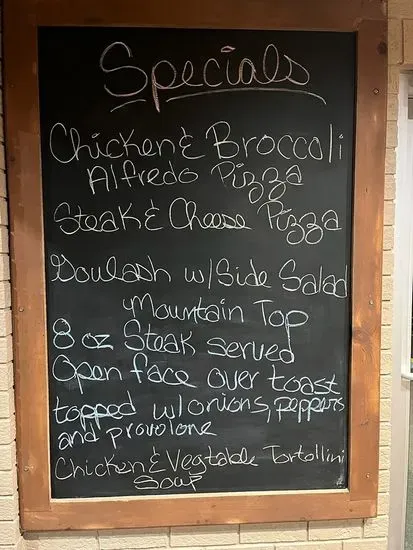 Specials
Chicken & Broccoli
Alfredo Pizza
Steak & Cheese Pizza
Goulash w/ Side Salad
Mountain Top
8 oz Steak served
Open face over toast
topped w/ onions, peppers
and provolone
Chicken & Vegtable Tortollini
Soup